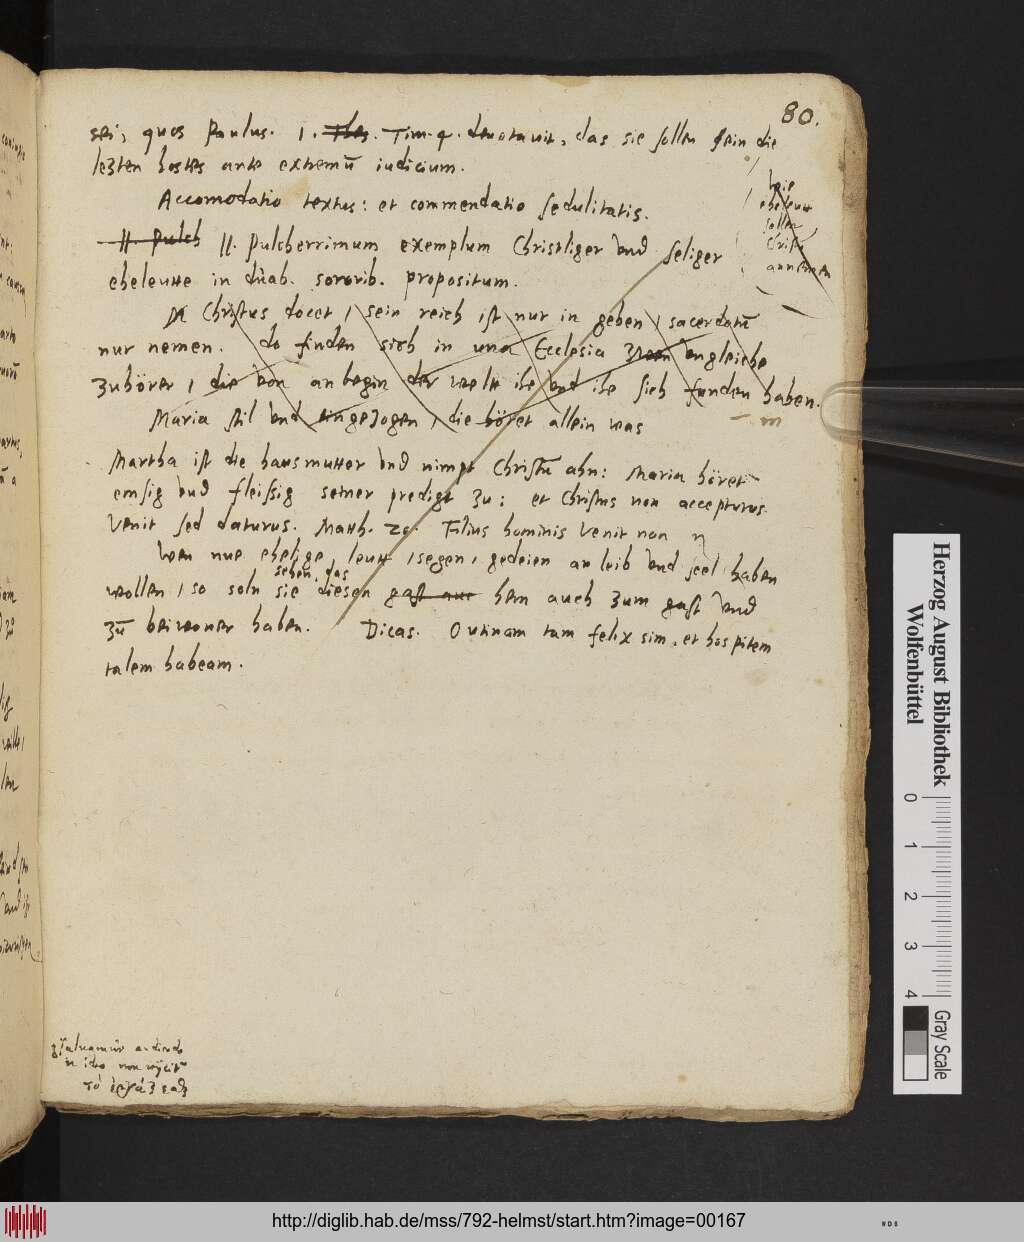 80.
sei, quos Paulus. 1. Thes. Tim. 4. denotavit, das sie sollen sein die
lezten hostes ante extremū iudicium.
Accomodatio textus: et commendatio sedulitatis.
II. Pulch II. Pulcherrimum exemplum Christliger und seliger
eheleutte in duab. sororib. propositum.
wie
eheleutt
sollen
Christū
annemen
Da Christus docet, sein reich ist nur in geben, sacerdotū
nur nemen. do finden sich in una Ecclesia zwen ungleiche
zuhörer, die von anbegin der weltt ihe und ihe sich funden haben.
Maria stil und eingezogen, die höret allein was
Martha ist die hausmutter und nimpt Christū ahn: Maria höret
emsig und fleissig seiner predigt zu: et Christus non accepturus
venit sed daturus. Matth. 20. Filius hominis venit non
Wen nue ehelige leutt, segen, gedeien an leib und seel haben
sehen, das
wollen, so soln sie diesen gast aur hern auch zum gast und
zū beiwoner haben. Dicas. O utinam tam felix sim, et hospitem
talem habeam.
salvamur audiendo
non
τὸ
Herzog August Bibliothek
Wolfenbüttel
0 1 2 3 4
Gray Scale
http://diglib.hab.de/mss/792-helmst/start.htm?image=00167